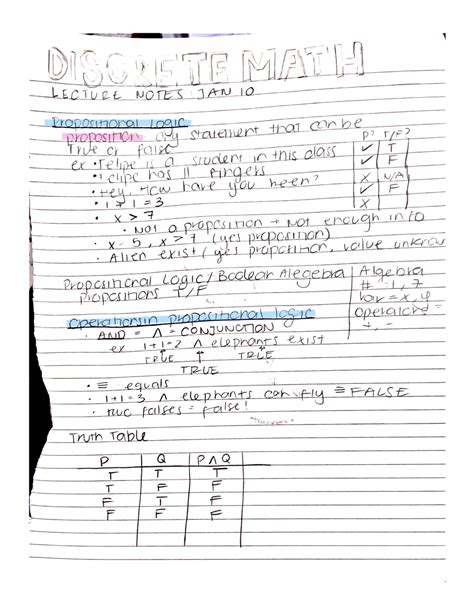 DISCRETE MATH
LECTURE NOTES JAN 10
Propositional logic
proposition any statement that can be
True or false
P? T/F?
ex • Felipe is a student in this class ✓ T
• Felipe has 11 fingers ✓ F
• Hey, How have you been? X N/A
• 1 + 1 = 3 ✓ F
• x > 7 X
• Not a proposition → Not enough info
• x = 5, x > 7 (yes proposition)
• Alien exist (yes proposition, value unknown
Propositional Logic/Boolean Alegebra | Algebra
propositions T/F # : 1, 7
var = x, y
Operations in propositional logic
operators =
+, -
• AND = ∧ = CONJUNCTION
ex 1+1=2 ∧ elephants exist
TRUE ↑ TRUE
TRUE
• ≡ equals
• 1+1=3 ∧ elephants can fly ≡ FALSE
• two falses = false!
Truth Table
P Q P∧Q
T T T
T F F
F T F
F F F